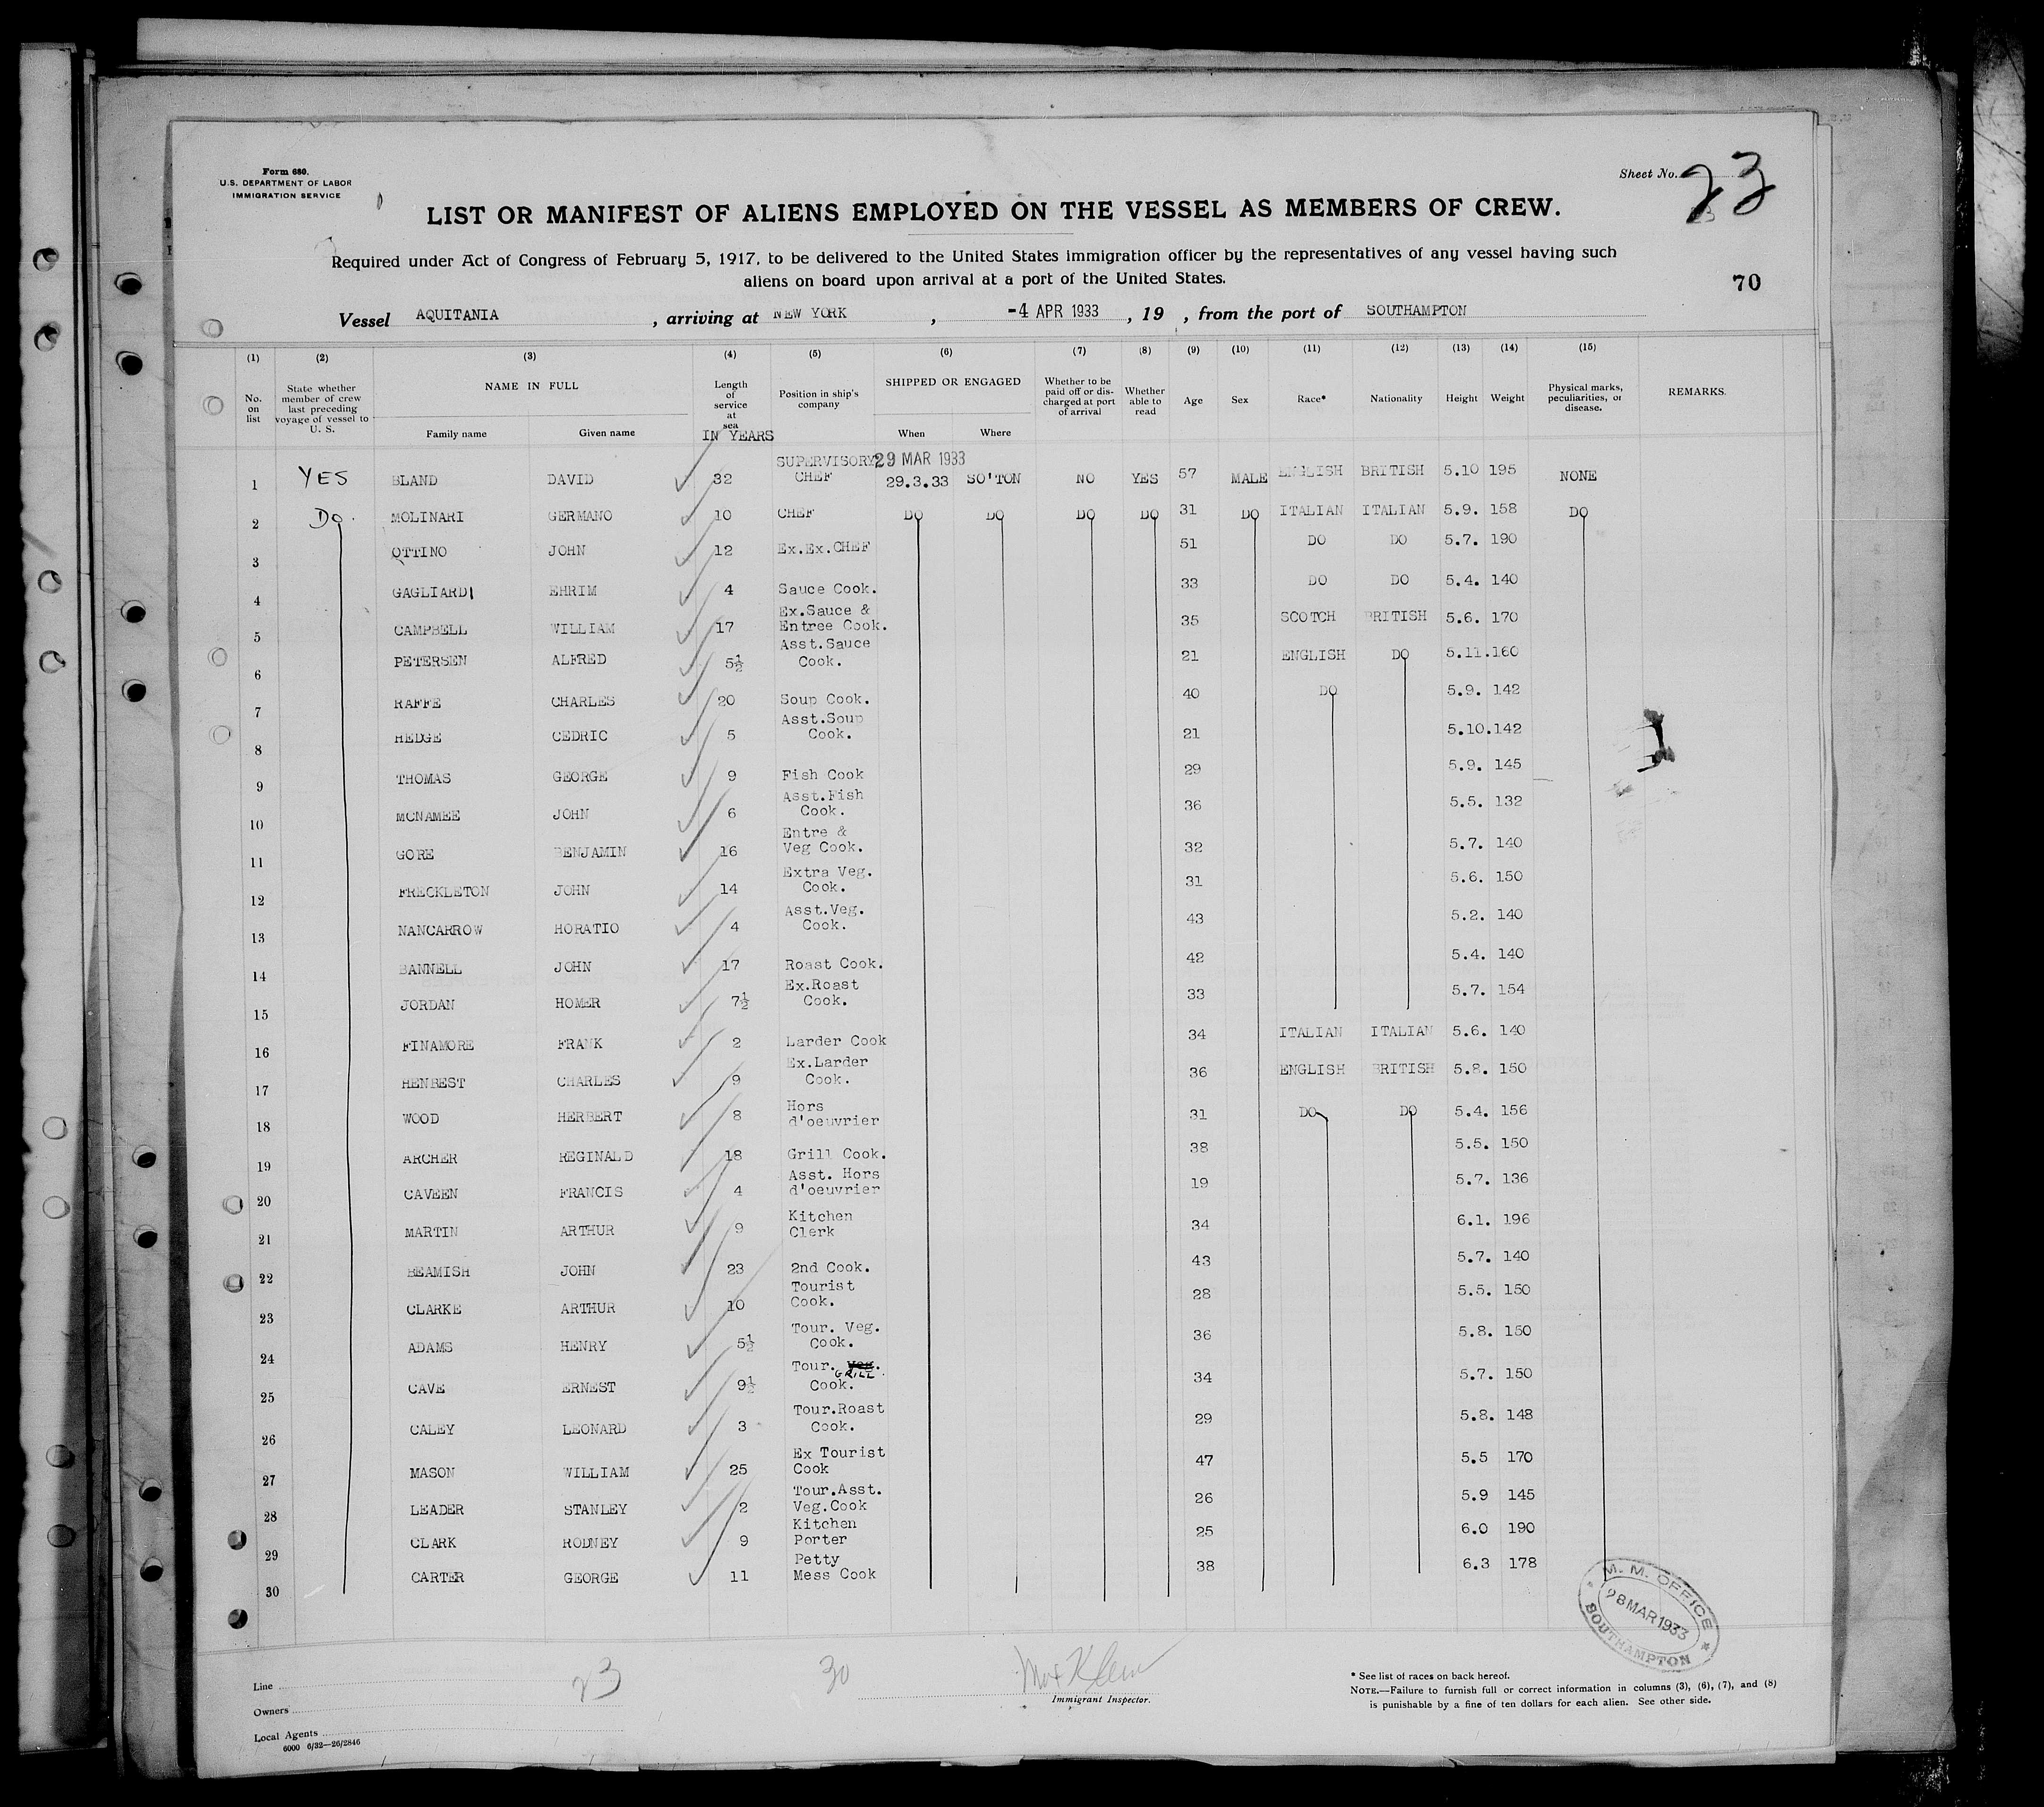 Form 680.
U.S. DEPARTMENT OF LABOR
IMMIGRATION SERVICE
Sheet No. 23
LIST OR MANIFEST OF ALIENS EMPLOYED ON THE VESSEL AS MEMBERS OF CREW.
Required under Act of Congress of February 5, 1917, to be delivered to the United States immigration officer by the representatives of any vessel having such
aliens on board upon arrival at a port of the United States.
70
Vessel AQUITANIA , arriving at NEW YORK , -4 APR 1933 , 19 , from the port of SOUTHAMPTON
(1) (2) (3) (4) (5) (6) (7) (8) (9) (10) (11) (12) (13) (14) (15)
No. on list
State whether member of crew last preceding voyage of vessel to U. S.
NAME IN FULL
Family name Given name
Length of service at sea
IN YEARS
Position in ship's company
SHIPPED OR ENGAGED
When Where
Whether to be paid off or discharged at port of arrival
Whether able to read
Age
Sex
Race*
Nationality
Height
Weight
Physical marks, peculiarities, or disease.
REMARKS.
1 YES BLAND DAVID 32 SUPERVISORY CHEF 29 MAR 1933 29.3.33 SO'TON NO YES 57 MALE ENGLISH BRITISH 5.10 195 NONE
2 DO. MOLINARI GERMANO 10 CHEF DO DO DO DO 31 DO ITALIAN ITALIAN 5.9. 158 DO
3 OTTINO JOHN 12 Ex.Ex.CHEF 51 DO DO 5.7. 190
4 GAGLIARDI EHRIM 4 Sauce Cook. 33 DO DO 5.4. 140
5 CAMPBELL WILLIAM 17 Ex.Sauce & Entree Cook. 35 SCOTCH BRITISH 5.6. 170
6 PETERSEN ALFRED 5½ Asst.Sauce Cook. 21 ENGLISH DO 5.11.160
7 RAFFE CHARLES 20 Soup Cook. 40 DO 5.9. 142
8 HEDGE CEDRIC 5 Asst.Soup Cook. 21 5.10.142
9 THOMAS GEORGE 9 Fish Cook 29 5.9. 145
10 MCNAMEE JOHN 6 Asst.Fish Cook. 36 5.5. 132
11 GORE BENJAMIN 16 Entre & Veg Cook. 32 5.7. 140
12 FRECKLETON JOHN 14 Extra Veg. Cook. 31 5.6. 150
13 NANCARROW HORATIO 4 Asst.Veg. Cook. 43 5.2. 140
14 BANNELL JOHN 17 Roast Cook. 42 5.4. 140
15 JORDAN HOMER 7½ Ex.Roast Cook. 33 5.7. 154
16 FINAMORE FRANK 2 Larder Cook 34 ITALIAN ITALIAN 5.6. 140
17 HENBEST CHARLES 9 Ex.Larder Cook. 36 ENGLISH BRITISH 5.8. 150
18 WOOD HERBERT 8 Hors d'oeuvrier 31 DO DO 5.4. 156
19 ARCHER REGINALD 18 Grill Cook. 38 5.5. 150
20 CAVEEN FRANCIS 4 Asst. Hors d'oeuvrier 19 5.7. 136
21 MARTIN ARTHUR 9 Kitchen Clerk 34 6.1. 196
22 BEAMISH JOHN 23 2nd Cook. 43 5.7. 140
23 CLARKE ARTHUR 10 Tourist Cook. 28 5.5. 150
24 ADAMS HENRY 5½ Tour. Veg. Cook. 36 5.8. 150
25 CAVE ERNEST 9½ Tour. Veg. GRILL Cook. 34 5.7. 150
26 CALEY LEONARD 3 Tour.Roast Cook. 29 5.8. 148
27 MASON WILLIAM 25 Ex Tourist Cook 47 5.5 170
28 LEADER STANLEY 2 Tour.Asst. Veg.Cook 26 5.9 145
29 CLARK RODNEY 9 Kitchen Porter 25 6.0 190
30 CARTER GEORGE 11 Petty Mess Cook 38 6.3 178
M. M. OFFICE
28 MAR 1933
SOUTHAMPTON
Line
Owners
Local Agents
6000 6/32—26/2846
23 30
Immigrant Inspector.
* See list of races on back hereof.
NOTE.—Failure to furnish full or correct information in columns (3), (6), (7), and (8)
is punishable by a fine of ten dollars for each alien. See other side.